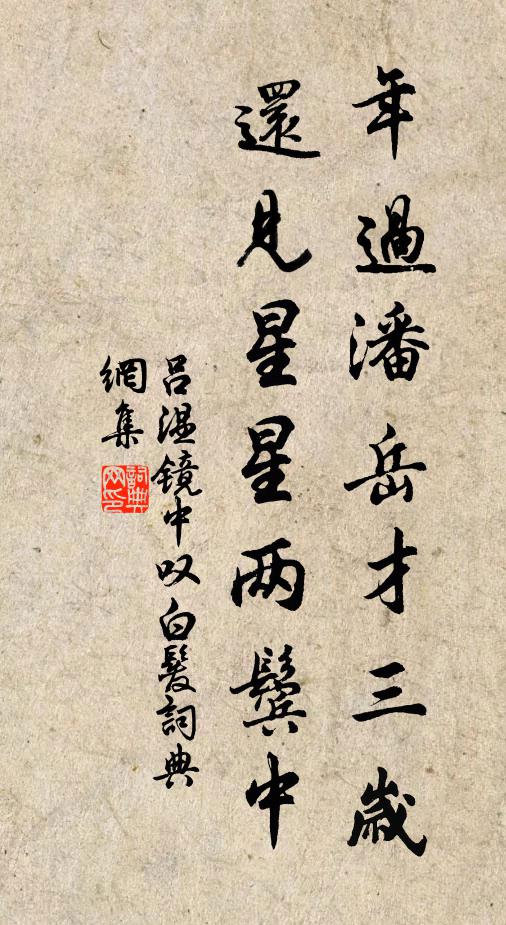 年過潘岳才三歲
還見星星两鬢中
吕温鏡中叹白髮詞典
網集
詞典網印